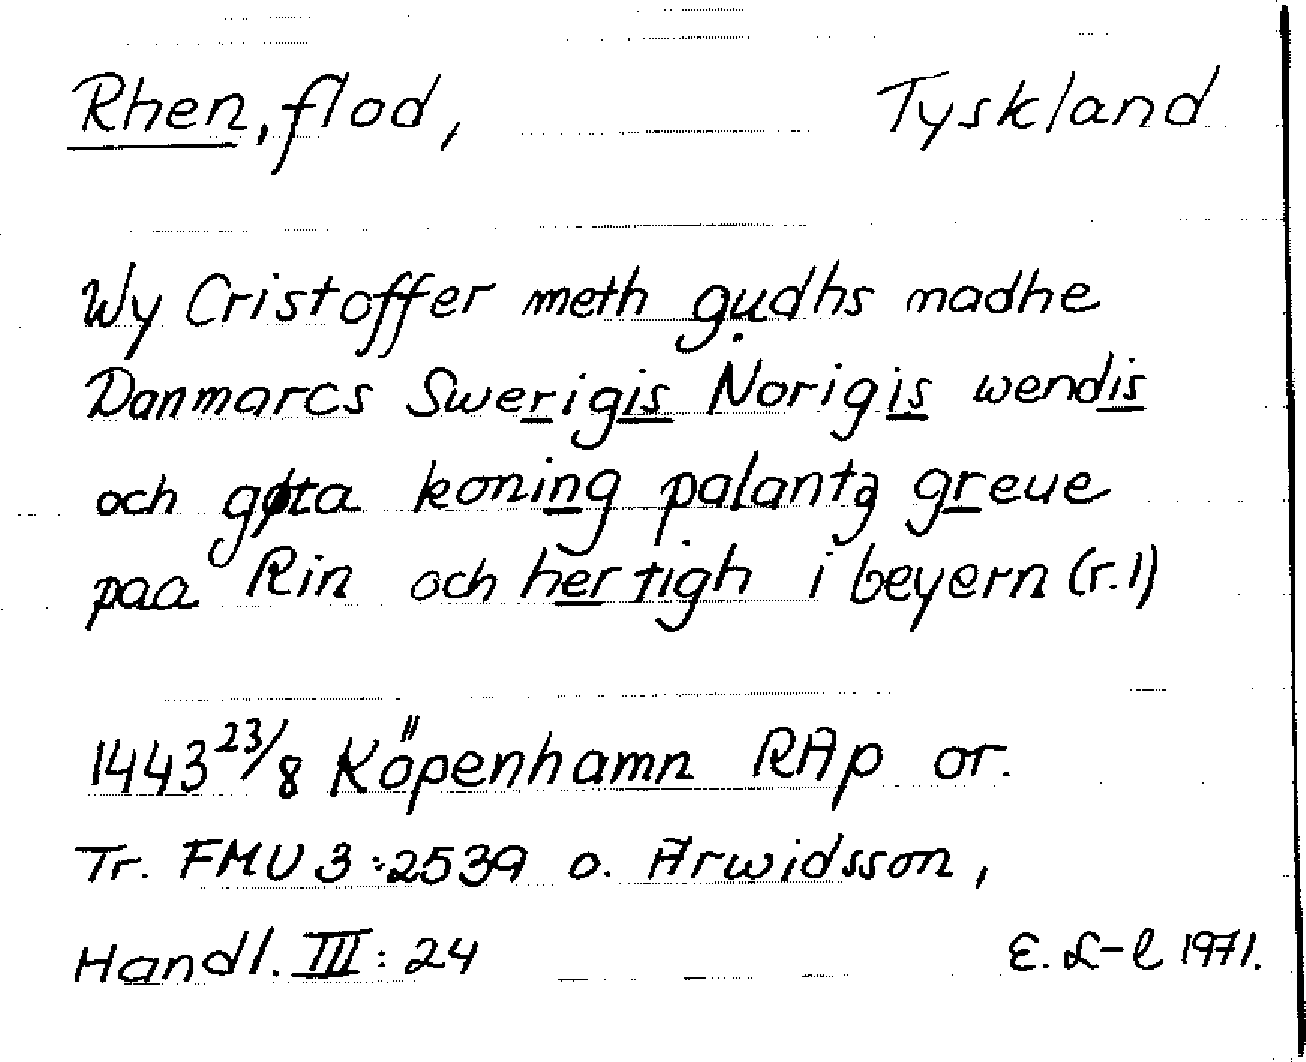 Rhen, flod, Tyskland
Wy Cristoffer meth gudhs madhe
Danmarcs Swerigis Norigis wendis
och gøta koning palantz greue
paa Rin och hertigh i beyern (r.1)
1443 23/8 Köpenhamn RAp or.
Tr. FMU 3:2539 o. Arwidsson,
Handl. III: 24 E. L-l 1971.